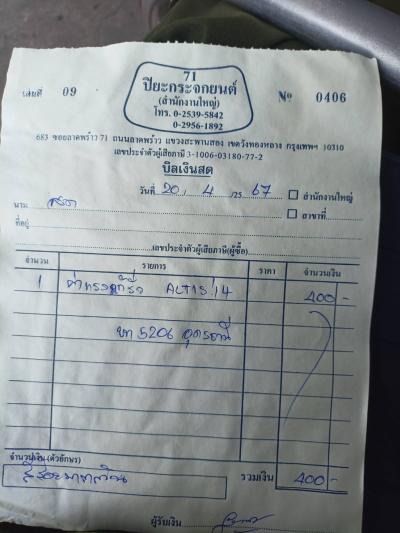 71
ปิยะกระจกยนต์
(สำนักงานใหญ่)
โทร. 0-2539-5842
0-2956-1892
เล่มที่ 09
Nº 0406
683 ซอยลาดพร้าว 71 ถนนลาดพร้าว แขวงสะพานสอง เขตวังทองหลาง กรุงเทพฯ 10310
เลขประจำตัวผู้เสียภาษี 3-1006-03180-77-2
บิลเงินสด
วันที่ 20 / 4 /25 67 สำนักงานใหญ่
นาม สด สาขาที่
ที่อยู่
เลขประจำตัวผู้เสียภาษี(ผู้ซื้อ)
จำนวน รายการ ราคา จำนวนเงิน
1 ALTIS'14 400 -
5206 อุดรธานี
จำนวนเงิน (ตัวอักษร)
สี่ร้อยบาทถ้วน รวมเงิน 400 -
ผู้รับเงิน